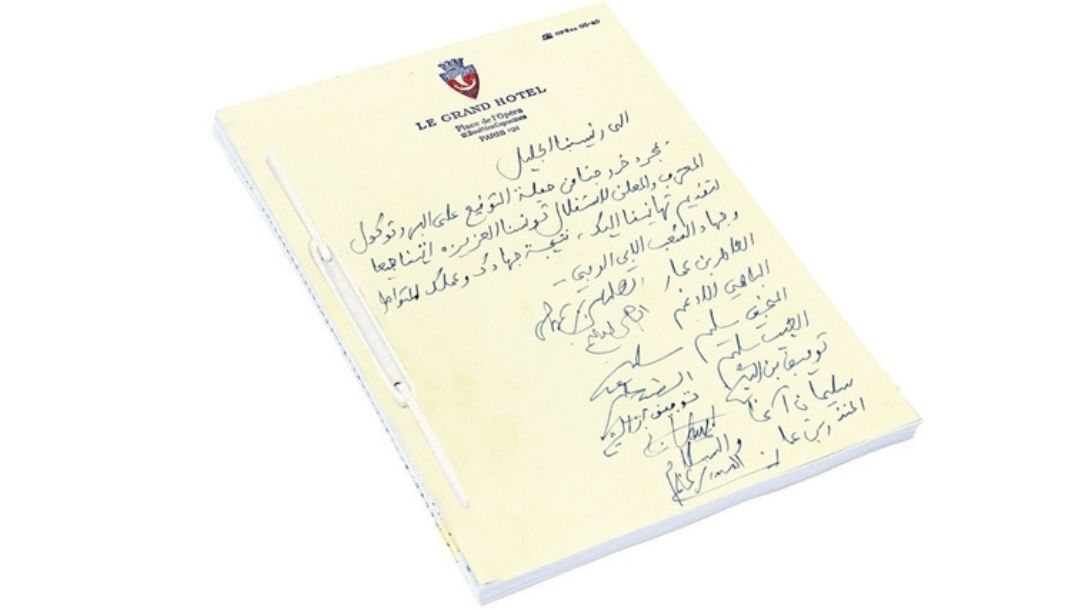 ☎ OPÉRA 05-40
LE GRAND HOTEL
Place de l'Opéra
12 Boul.d des Capucines
PARIS
الى رئيسنا الجليل
بمجرد خروجنا من حفلة التوقيع على البروتوكول
المعترف والمعلن لاستقلال تونسنا العزيزه اتينا جميعا
لتقديم تهانينا اليك، نتيجة جهادك وعملك المتواصل
وجهاد الشعب الابي الوفي -
الطاهر بن عمار الطاهر بن عمار
الباهي الادغم
المنجي سليم
الطيب سليم
توفيق بن الشيخ توفيق بن الشيخ
سليمان آغا
المنذر بن عمار
والسلام